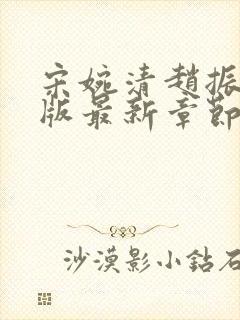 宋婉清趙振
版最新章節
沙漠影小鈷石